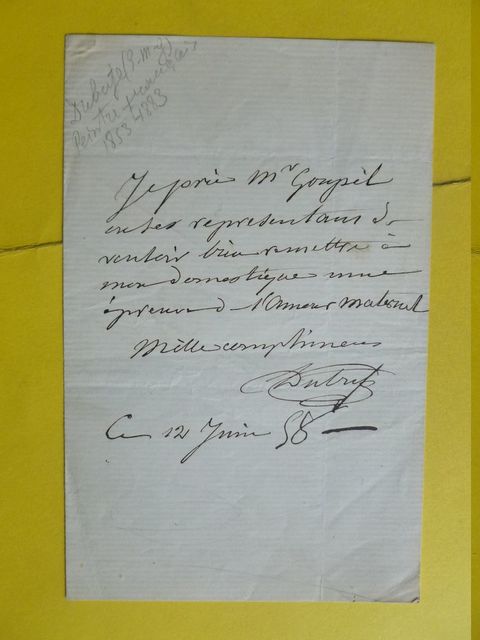 Dubufe (
Peintre français
1853 + 1883
Je prie Mr Goupil
ou ses représentans de
vouloir bien remettre à
mon domestique une
épreuve de l'amour maternel
Mille complimens
Dubufe
Ce 12 Juin 58